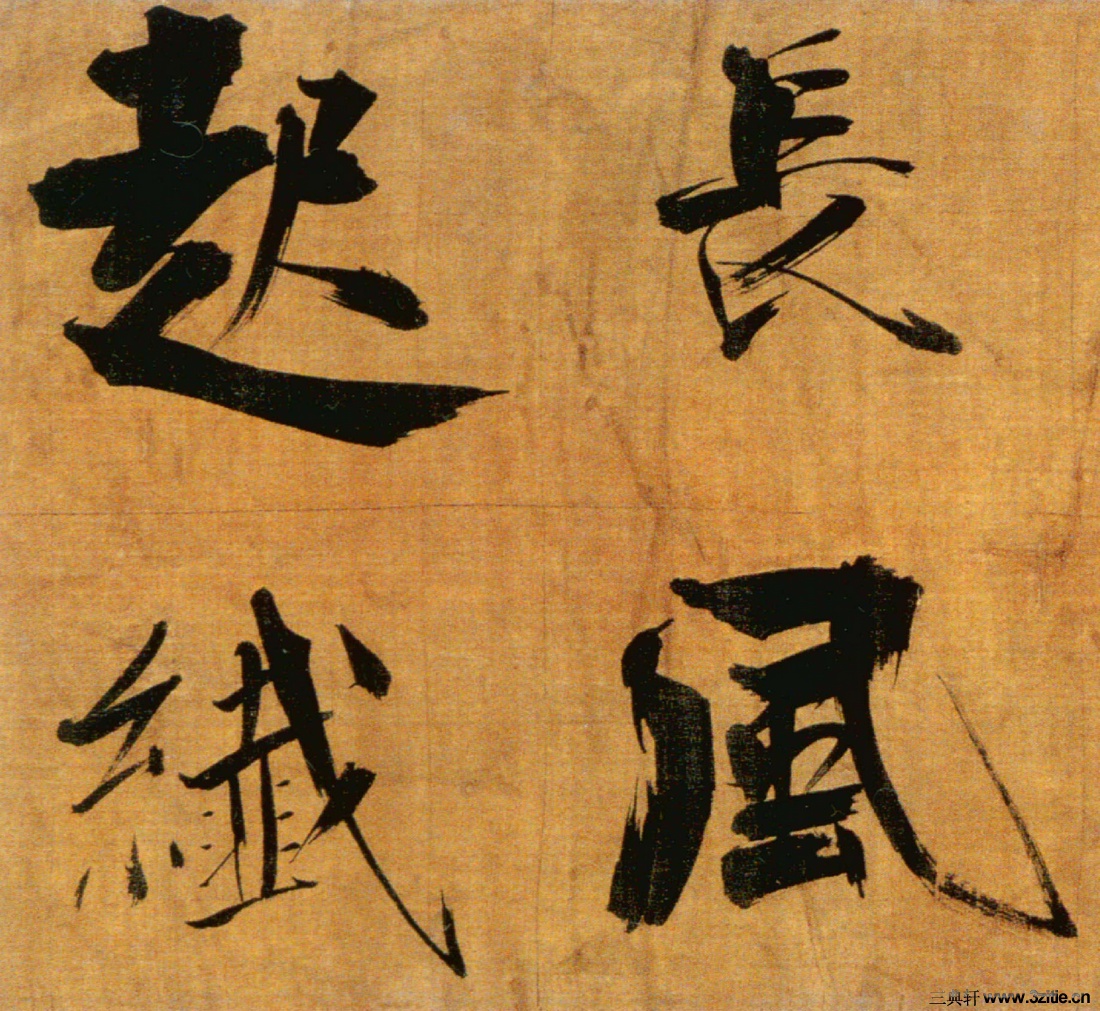 長風
起纖
三典轩 www.3zitie.cn